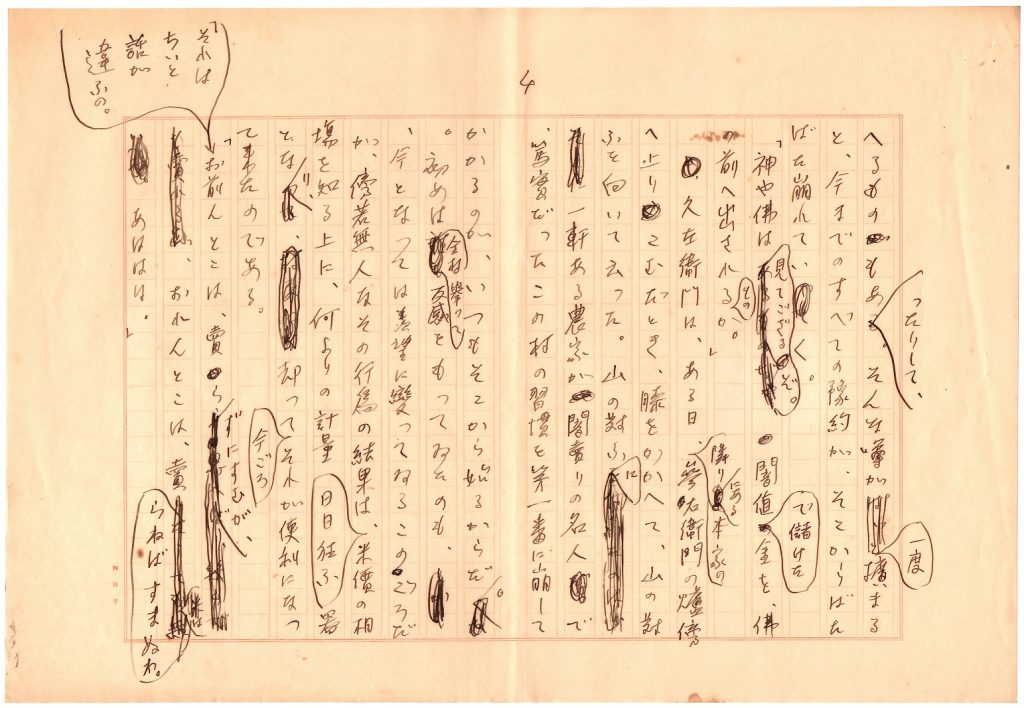 4
へるものもあつたりして、そんな噂が一度擴まる
と、今までのすべての豫約が、そこからばた
ばた崩れていく。
「神や佛は見てござるぞ。闇値で儲けた金を、佛
の前へ出されるものか。」
久左衛門は、ある日、隣りにある本家の參右衛門の爐傍
へ上りこむだとき、膝をかかへて、山の對
ふを向いて云つた。山の對ふに
一軒ある農家が闇賣りの名人で
、篤實だつたこの村の習慣を第一番に崩して
かかるのが、いつもそこから始るからだ。
。初めは全村擧つて反感をもつてゐたのも、
、今となつては羨望に變つてゐるこのごろだ
が、傍若無人なその行爲の結果は、日日狂ふ米價の相
場を知る上に、何よりの計量器
となり、却つて今ごろそれが便利になつ
て來たのである。
「それはちいと話が違ふの。
お前んとこは、賣らずにすむが、
おれんとこは、米は賣らねばすまぬわ。
あははは。」